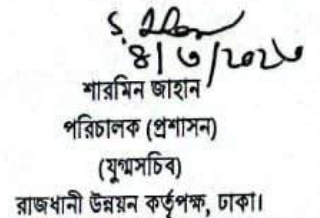 ৪/৩/২০২৬
শারমিন জাহান
পরিচালক (প্রশাসন)
(যুগ্মসচিব)
রাজধানী উন্নয়ন কর্তৃপক্ষ, ঢাকা।